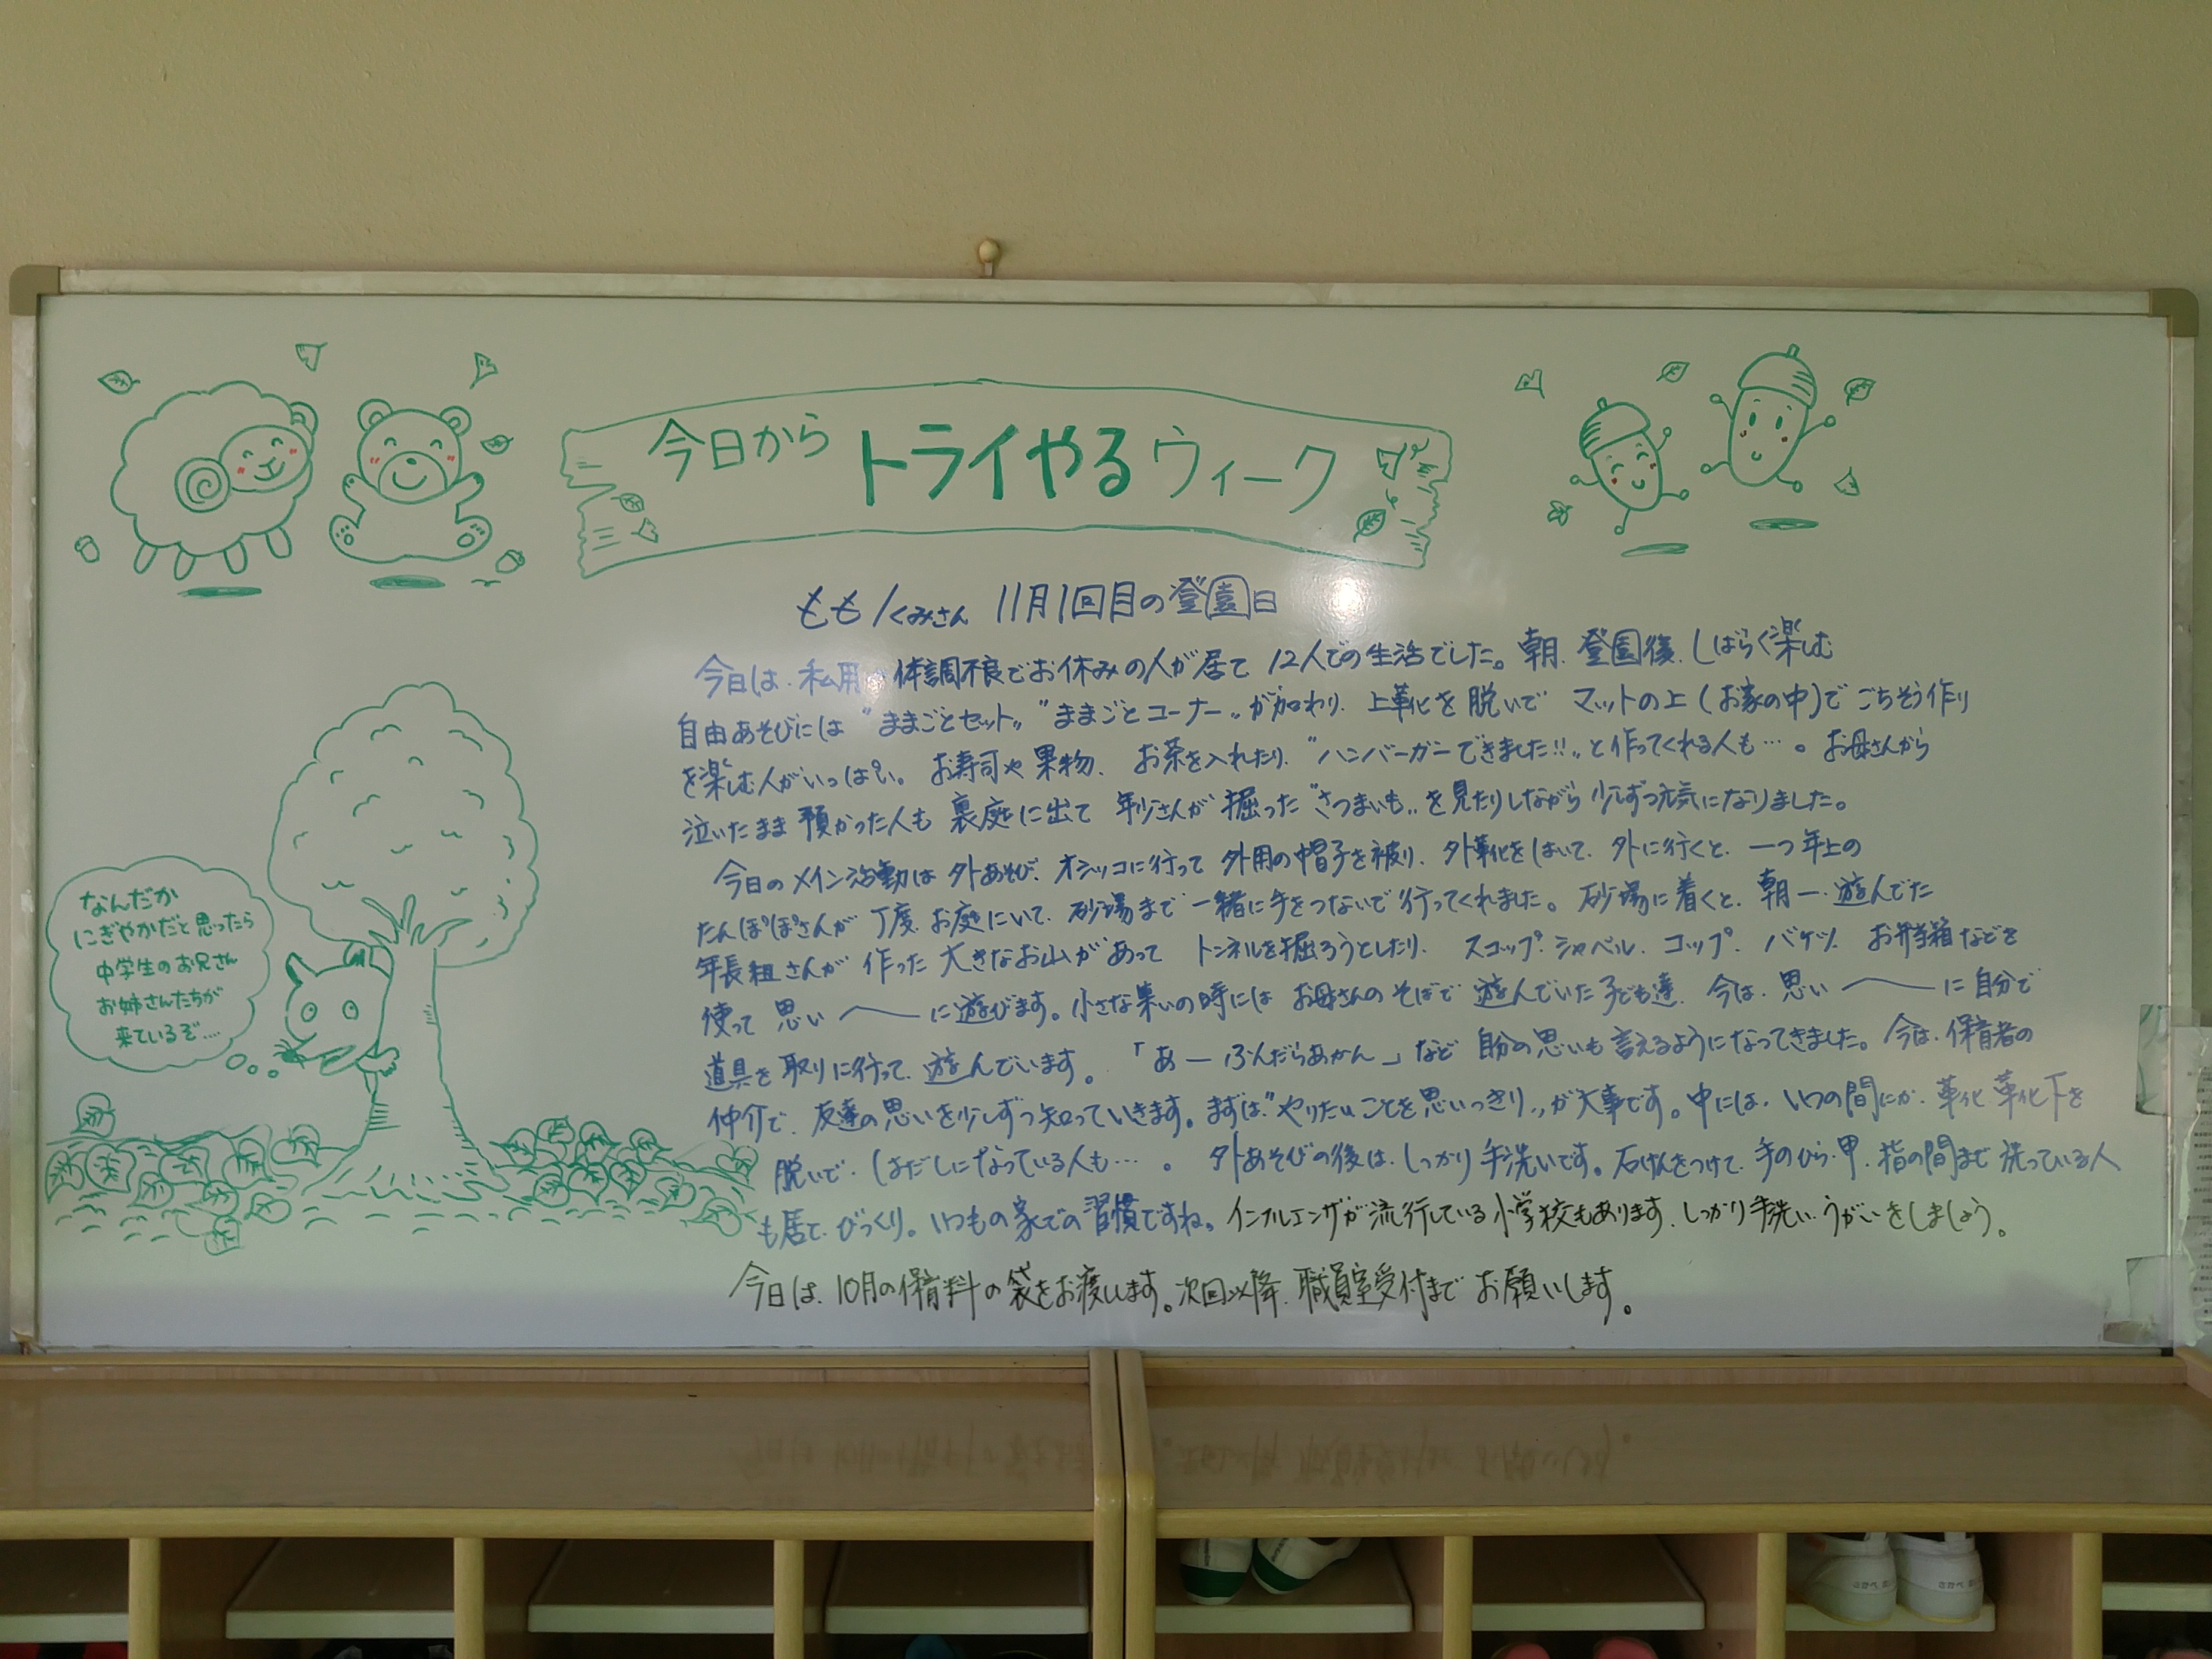 今日から トライやるウィーク
もも1くみさん 11月1回目の登園日
今日は、私用、体調不良でお休みの人が居て 12人での生活でした。朝、登園後、しばらく楽しむ
自由あそびには "ままごとセット" "ままごとコーナー" が加わり、上靴を脱いで マットの上(お家の中)で ごちそう作り
を楽しむ人がいっぱい。お寿司や果物、お茶を入れたり、"ハンバーガーできました!!" と作ってくれる人も…。お母さんから
泣いたまま預かった人も 裏庭に出て 年少さんが掘った "さつまいも" を見たりしながら 少しずつ元気になりました。
今日のメイン活動は外あそび、オシッコに行って外用の帽子を被り、外靴をはいて、外に行くと、一つ年上の
たんぽぽさんが丁度、お庭にいて、砂場まで一緒に手をつないで行ってくれました。砂場に着くと、朝一、遊んでた
年長組さんが作った大きなお山があって トンネルを掘ろうとしたり、スコップ、シャベル、コップ、バケツ、お弁当箱などを
使って 思い〜に遊びます。小さな集いの時には お母さんのそばで遊んでいた子ども達、今は、思い〜に自分で
道具を取りに行って、遊んでいます。「あーふんだらあかん」など 自分の思いも言えるようになってきました。今は、保育者の
仲介で、友達の思いを少しずつ知っていきます。まずは、"やりたいことを思いっきり" が大事です。中には、いつの間にか、靴、靴下を
脱いで、はだしになっている人も…。外あそびの後は、しっかり手洗いです。石けんをつけて、手のひら・甲、指の間まで洗っている人
も居て、びっくり。いつもの家での習慣ですね。インフルエンザが流行している小学校もあります。しっかり手洗い、うがいをしましょう。
今日は、10月の保育料の袋をお渡しします。次回以降、職員室受付まで お願いします。
なんだか
にぎやかだと思ったら
中学生のお兄さん
お姉さんたちが
来ているぞ…